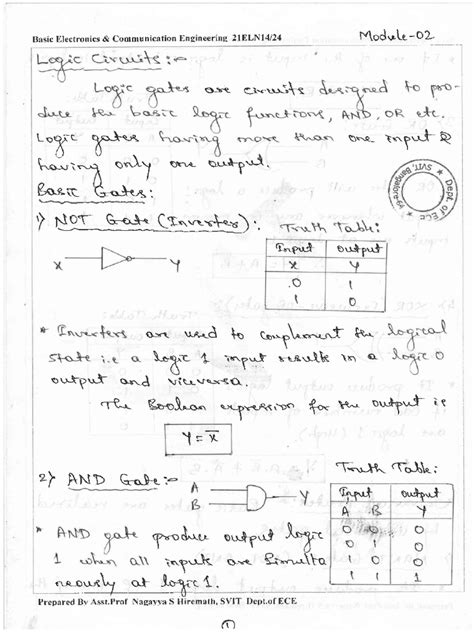 Basic Electronics & Communication Engineering 21ELN14/24
Module-02
Logic Circuits:-
Logic gates are circuits designed to pro-
duce the basic logic functions, AND, OR etc.
Logic gates having more than one input &
having only one output.
Basic Gates:
SVIT, Bangalore
Dept. of ECE
1) NOT Gate (Inverter):
Truth Table:
Input output
X Y
0 1
1 0
X Y
* Inverters are used to complement the logical
state i.e a logic 1 input results in a logic 0
output and viceversa.
The Boolean expression for the output is
Y = X̅
2) AND Gate:-
A
B
Y
Truth Table:
Input output
A B Y
0 0 0
0 1 0
1 0 0
1 1 1
* AND gate produce output logic
1 when all inputs are Simulta
neously at logic 1.
Prepared By Asst.Prof Nagayya S Hiremath, SVIT Dept.of ECE
1